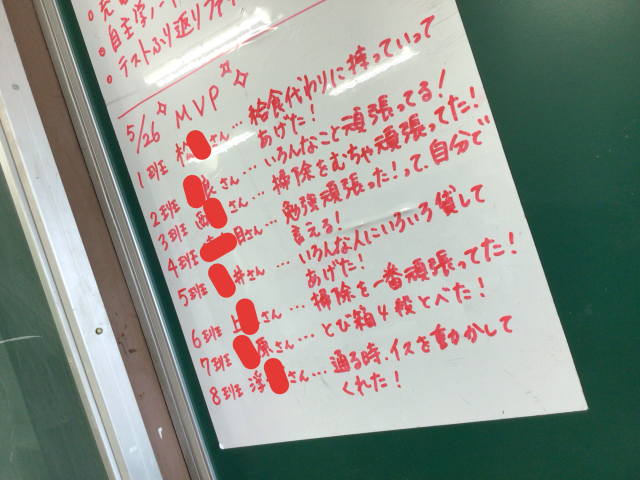 ・自主学ノート
・テストふり返りファイ
5/26 MVP
1班 松 さん… 給食代わりに持っていって
あげた!
2班 良さん… いろんなこと頑張ってる!
3班 西 さん… 掃除をむちゃ頑張ってた!
4班 目さん… 勉強頑張った!って、自分で
言える!
5班 井さん … いろんな人にいろいろ貸して
あげた!
6班 上 さん … 掃除を一番頑張ってた!
7班 原さん… とび箱4段とべた!
8班 澤 さん… 通る時、イスを動かして
くれた!